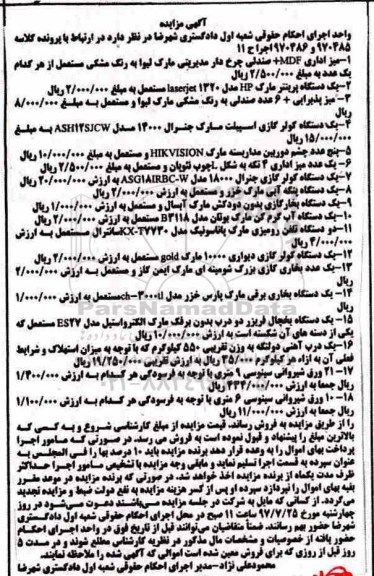 آگهی مزایده
واحد اجرای احکام حقوقی شعبه اول دادگستری شهرضا در نظر دارد در ارتباط با پرونده کلاسه
۹۷۰۲۸۵ و ۹۷۰۲۸۶ اجرا ح ۱۱
۱-میز اداری MDF+ صندلی چرخ دار مدیریتی مارک لیوا به رنگ مشکی مستعمل از هر کدام
یک عدد به مبلغ ۲/۵۰۰/۰۰۰ ریال
۲-یک دستگاه پرینتر مارک HP مدل laserjet ۱۳۲۰ مستعمل به مبلغ ۲/۰۰۰/۰۰۰ ریال
۳-میز پذیرایی + ۶ عدد صندلی به رنگ مشکی مارک لیوا و مستعمل به مبلغ ۸/۰۰۰/۰۰۰
ریال
۴-یک دستگاه کولر گازی اسپیلت مارک جنرال ۱۴۰۰۰ مدل ASH12SJCW به مبلغ
۱۵/۰۰۰/۰۰۰ ریال
۵-پنج عدد چشم دوربین مداربسته مارک HIKVISION و مستعمل به مبلغ ۱۰/۰۰۰/۰۰۰ ریال
۶-یک عدد میز اداری ۴ تکه به شکل L چوب نئوپان و مستعمل به مبلغ ۲/۵۰۰/۰۰۰ ریال
۷-یک دستگاه کولر گازی جنرال ۱۸۰۰۰ مدل ASG18IRBC-W به ارزش ۲۰/۰۰۰/۰۰۰ ریال
۸-یک دستگاه پنکه آبی مارک خزر و مستعمل به ارزش ۲/۰۰۰/۰۰۰ ریال
۹-یک دستگاه بخارگازی بدون دودکش مارک آبسال و مستعمل به ارزش ۱/۰۰۰/۰۰۰ ریال
۱۰-یک دستگاه آب گرم کن مارک بوتان مدل B۳۱۱۸ مستعمل به ارزش ۲/۰۰۰/۰۰۰ ریال
۱۱-دو دستگاه تلفن رومیزی مارک پاناسونیک مدل KX-T۷۷۳۰ سانترال مستعمل به ارزش
۴/۰۰۰/۰۰۰ ریال
۱۲-یک دستگاه کولر گازی دیواری ۱۰۰۰۰ مارک gold مستعمل به ارزش ۲/۰۰۰/۰۰۰ ریال
۱۳-یک عدد بخاری گازی بزرگ شومینه ای مارک ایمن گاز و مستعمل به ارزش ۲/۰۰۰/۰۰۰
ریال
۱۴- یک دستگاه بخاری برقی مارک پارس خزر مدل ch-۳۰۰۰tl مستعمل به ارزش ۱/۰۰۰/۰۰۰
ریال
۱۵-یک دستگاه یخچال فریزر دو درب بدون برفک مارک الکترواستیل مدل ES۲۷ مستعمل که
یکی از دسته های آن شکسته است به ارزش ۱۰/۰۰۰/۰۰۰ ریال
۱۶-یک درب آهنی دولنگه به وزن تقریبی ۵۵۰ کیلوگرم که با توجه به میزان استهلاک و شرایط
فعلی آن به ازاء هر کیلوگرم ۳۵/۰۰۰ ریال به ارزش تقریبی ۱۹/۲۵۰/۰۰۰ ریال
۱۷- ورق شیروانی سینوسی ۹ متری با توجه به فرسودگی هر کدام به ارزش ۱/۴۰۰/۰۰۰
ریال جمعا به ارزش ریال
۱۸-۱۰ ورق شیروانی سینوسی ۶ متری با توجه به فرسودگی هر کدام به ارزش ۱/۱۰۰/۰۰۰
ریال جمعا به ارزش ۱۱/۰۰۰/۰۰۰ ریال
را از طریق مزایده به فروش رساند. قیمت مزایده از مبلغ کارشناسی شروع و به کسی که
بالاترین مبلغ را پیشنهاد و قبول نموده است به فروش می رسد. در صورتی که مامور اجرا
پرداخت بهای اموال را به وعده قرار دهد برنده مزایده باید ۱۰ درصد بها را فی المجلس به
عنوان سپرده به قسمت اجرا تسلیم نماید و مابقی وجه مزایده با تشخیص مامور اجرا حداکثر
ظرف مدت یکماه از برنده مزایده اخذ خواهد شد. در صورتی که برنده مزایده در موعد مقرر
بقیه بهای اموال را نپردازد سپرده او پس از کسر هزینه مزایده به نفع دولت ضبط و مزایده تجدید
می گردد. از کسانی که مایل به شرکت در جلسه مزایده می باشند دعوت می شود در روز
چهارشنبه مورخ ۹۷/۷/۲۵ ساعت ۱۱ صبح در محل اجرای احکام حقوقی شعبه اول دادگستری
شهرضا حضور بهم رسانند. ضمناً متقاضیان می توانند قبل از تاریخ فوق در واحد اجرای احکام
حضور یافته از خصوصیات و مشخصات مال مذکور در نظریه کارشناس مطلع شوند و در مدت ۵
روز قبل از روزی که برای فروش معین شده است اموالی که آگهی شده را ملاحظه نمایند.
محمودعلی نژاد-مدیر اجرای احکام حقوقی شعبه اول دادگستری شهرضا
ParsNamadData